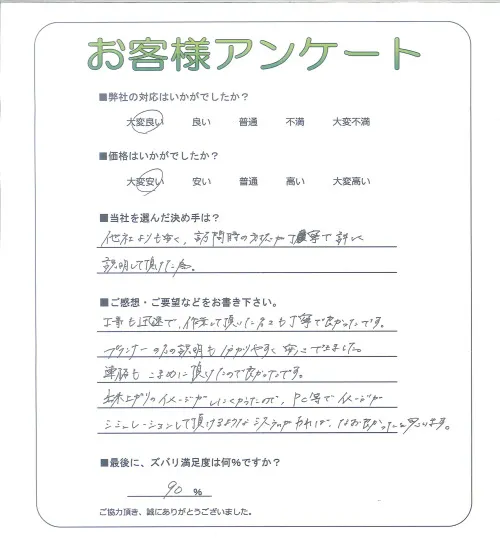 お客様アンケート
■弊社の対応はいかがでしたか？
大変良い 良い 普通 不満 大変不満
■価格はいかがでしたか？
大変安い 安い 普通 高い 大変高い
■当社を選んだ決め手は？
他社よりも安く、訪問時の対応が丁寧で詳しく
説明して頂けた為。
■ご感想・ご要望などをお書き下さい。
工事も迅速で、作業して頂いた方々も丁寧で良かったです。
プランナーの方の説明も分かりやすく安心できました。
連絡もこまめに頂けたので良かったです。
仕上がりのイメージがしにくかったので、PC等でイメージが
シミュレーションして頂けるようなシステムがあれば、なお良かったと思います。
■最後に、ズバリ満足度は何％ですか？
90 ％
ご協力頂き、誠にありがとうございました。